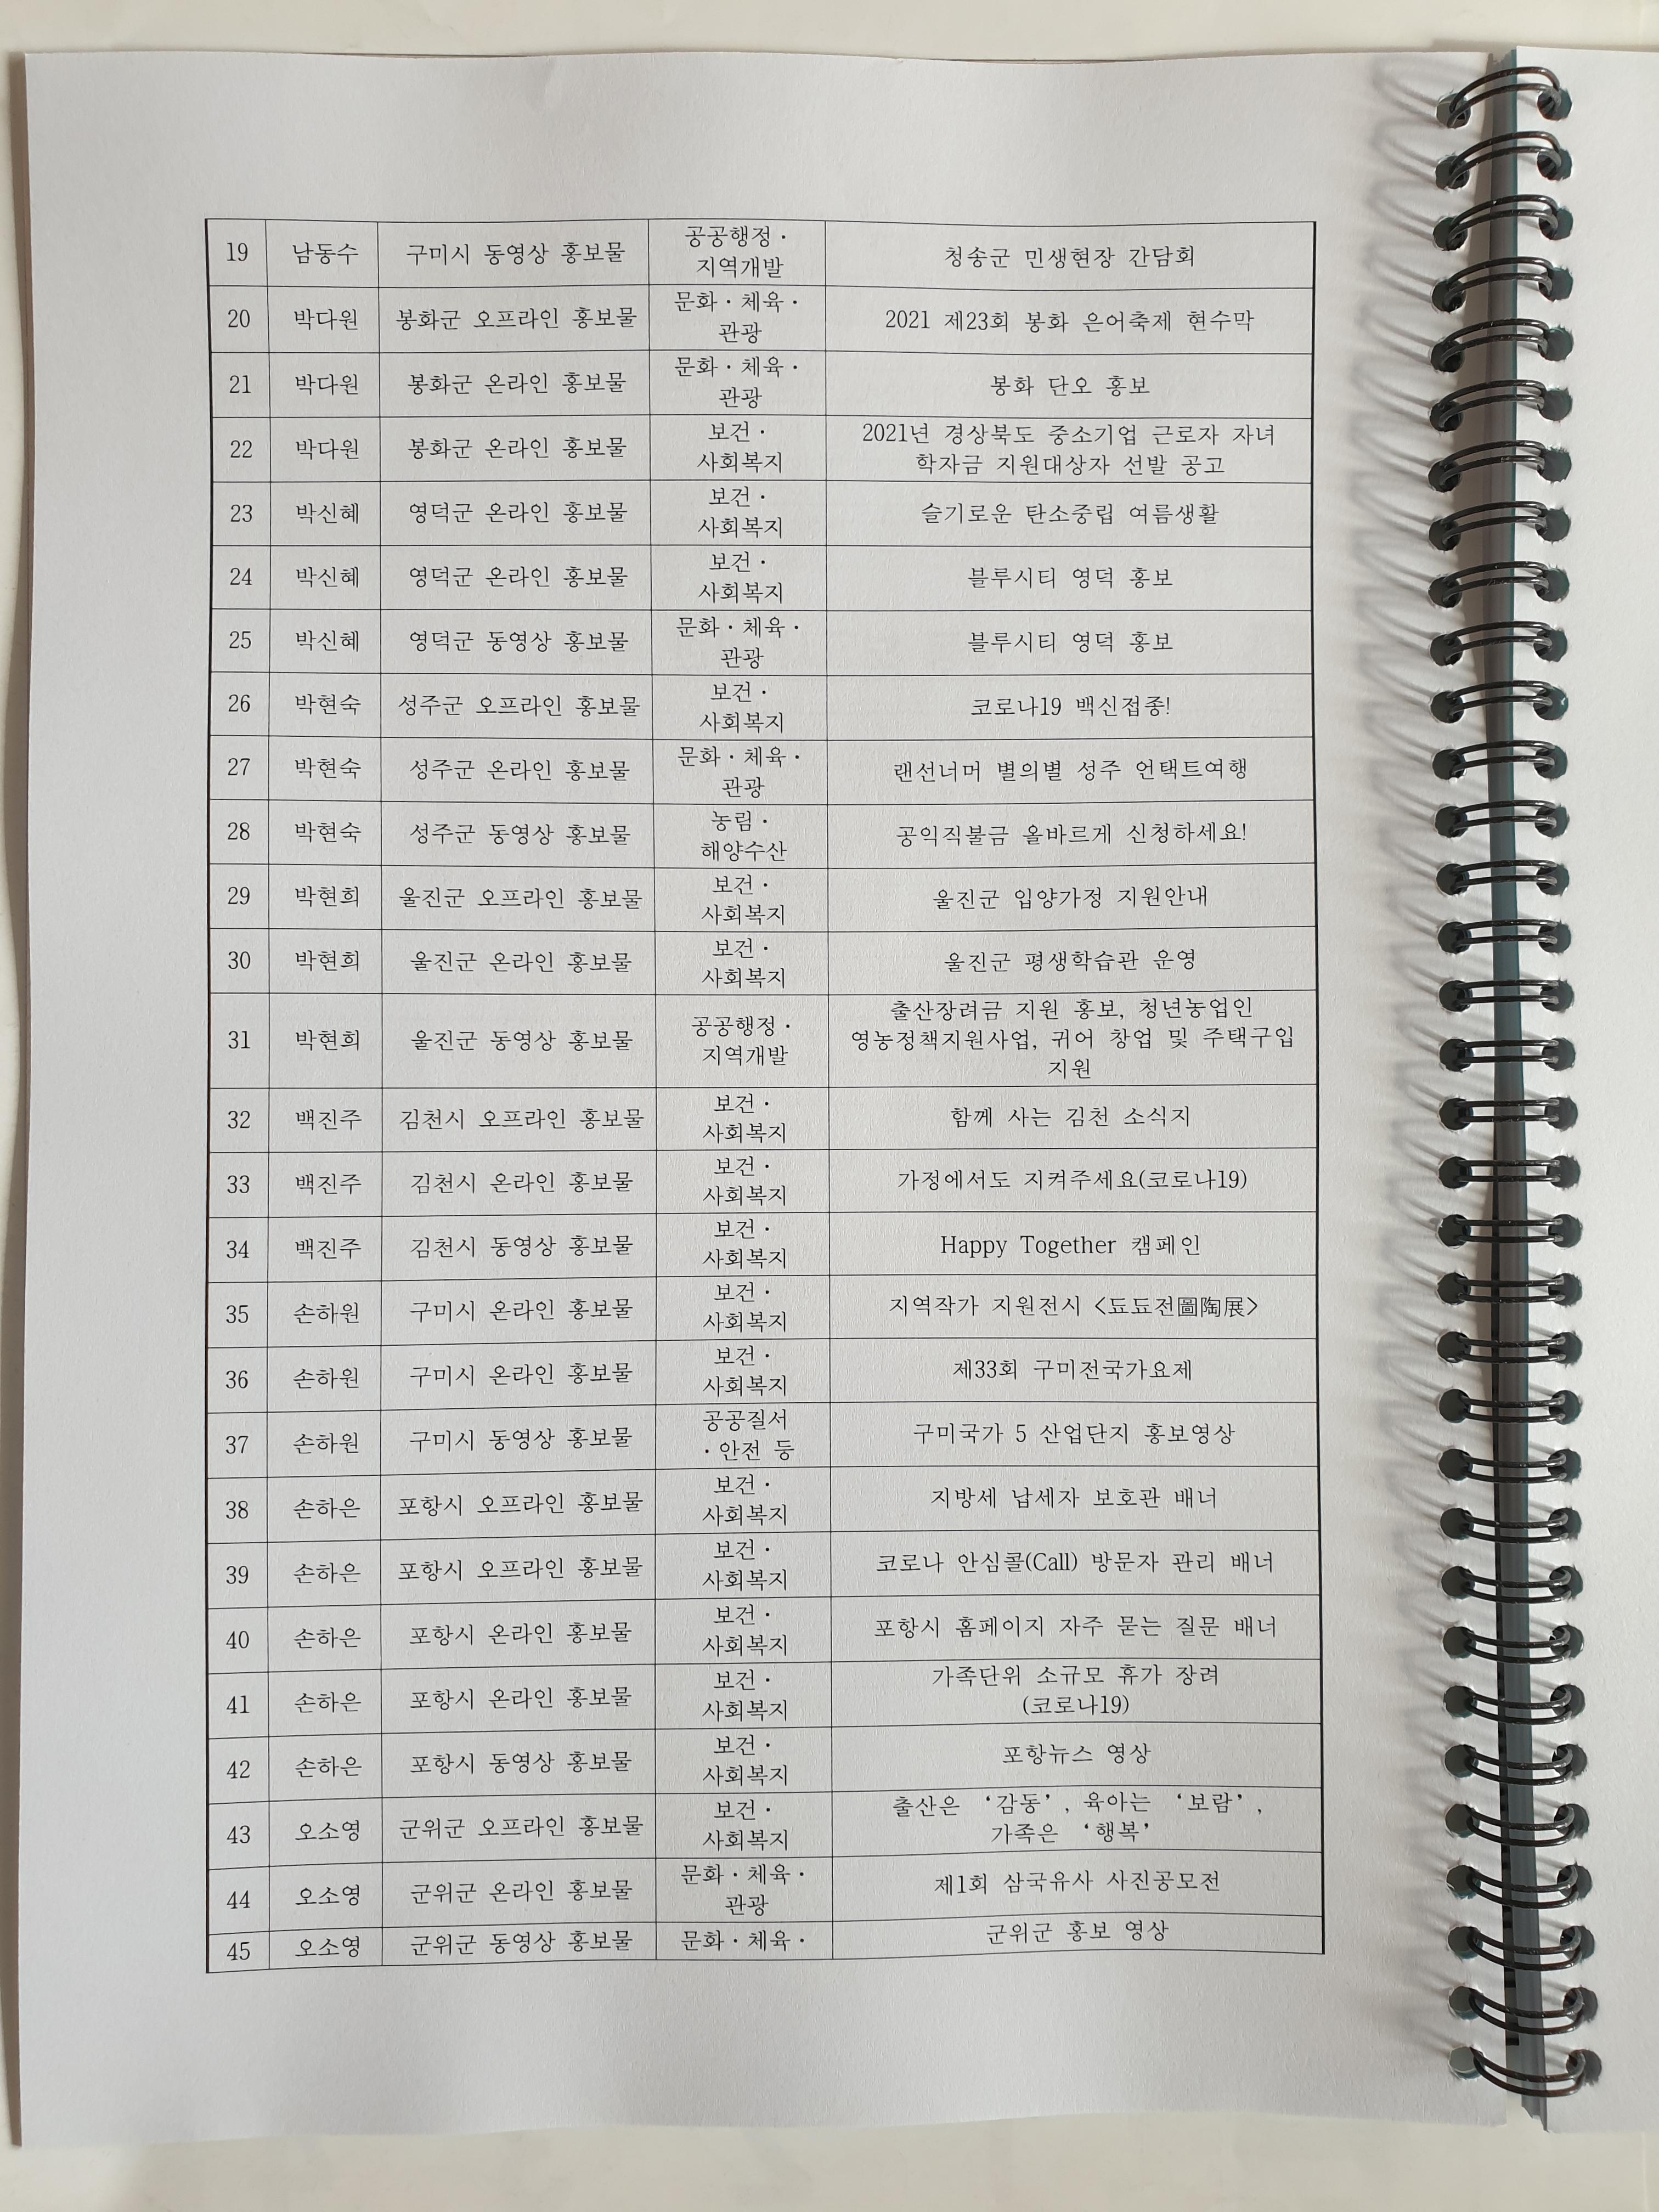 19 남동수 구미시 동영상 홍보물 공공행정· 지역개발 청송군 민생현장 간담회
20 박다원 봉화군 오프라인 홍보물 문화·체육· 관광 2021 제23회 봉화 은어축제 현수막
21 박다원 봉화군 온라인 홍보물 문화·체육· 관광 봉화 단오 홍보
22 박다원 봉화군 온라인 홍보물 보건· 사회복지 2021년 경상북도 중소기업 근로자 자녀 학자금 지원대상자 선발 공고
23 박신혜 영덕군 온라인 홍보물 보건· 사회복지 슬기로운 탄소중립 여름생활
24 박신혜 영덕군 온라인 홍보물 보건· 사회복지 블루시티 영덕 홍보
25 박신혜 영덕군 동영상 홍보물 문화·체육· 관광 블루시티 영덕 홍보
26 박현숙 성주군 오프라인 홍보물 보건· 사회복지 코로나19 백신접종!
27 박현숙 성주군 온라인 홍보물 문화·체육· 관광 랜선너머 별의별 성주 언택트여행
28 박현숙 성주군 동영상 홍보물 농림· 해양수산 공익직불금 올바르게 신청하세요!
29 박현희 울진군 오프라인 홍보물 보건· 사회복지 울진군 입양가정 지원안내
30 박현희 울진군 온라인 홍보물 보건· 사회복지 울진군 평생학습관 운영
31 박현희 울진군 동영상 홍보물 공공행정· 지역개발 출산장려금 지원 홍보, 청년농업인 영농정책지원사업, 귀어 창업 및 주택구입 지원
32 백진주 김천시 오프라인 홍보물 보건· 사회복지 함께 사는 김천 소식지
33 백진주 김천시 온라인 홍보물 보건· 사회복지 가정에서도 지켜주세요(코로나19)
34 백진주 김천시 동영상 홍보물 보건· 사회복지 Happy Together 캠페인
35 손하원 구미시 온라인 홍보물 보건· 사회복지 지역작가 지원전시 <됴됴전圖陶展>
36 손하원 구미시 온라인 홍보물 보건· 사회복지 제33회 구미전국가요제
37 손하원 구미시 동영상 홍보물 공공질서 ·안전 등 구미국가 5 산업단지 홍보영상
38 손하은 포항시 오프라인 홍보물 보건· 사회복지 지방세 납세자 보호관 배너
39 손하은 포항시 오프라인 홍보물 보건· 사회복지 코로나 안심콜(Call) 방문자 관리 배너
40 손하은 포항시 온라인 홍보물 보건· 사회복지 포항시 홈페이지 자주 묻는 질문 배너
41 손하은 포항시 온라인 홍보물 보건· 사회복지 가족단위 소규모 휴가 장려 (코로나19)
42 손하은 포항시 동영상 홍보물 보건· 사회복지 포항뉴스 영상
43 오소영 군위군 오프라인 홍보물 보건· 사회복지 출산은 ‘감동’, 육아는 ‘보람’, 가족은 ‘행복’
44 오소영 군위군 온라인 홍보물 문화·체육· 관광 제1회 삼국유사 사진공모전
45 오소영 군위군 동영상 홍보물 문화·체육· 군위군 홍보 영상